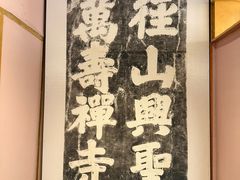 徑山興聖
萬壽禪寺